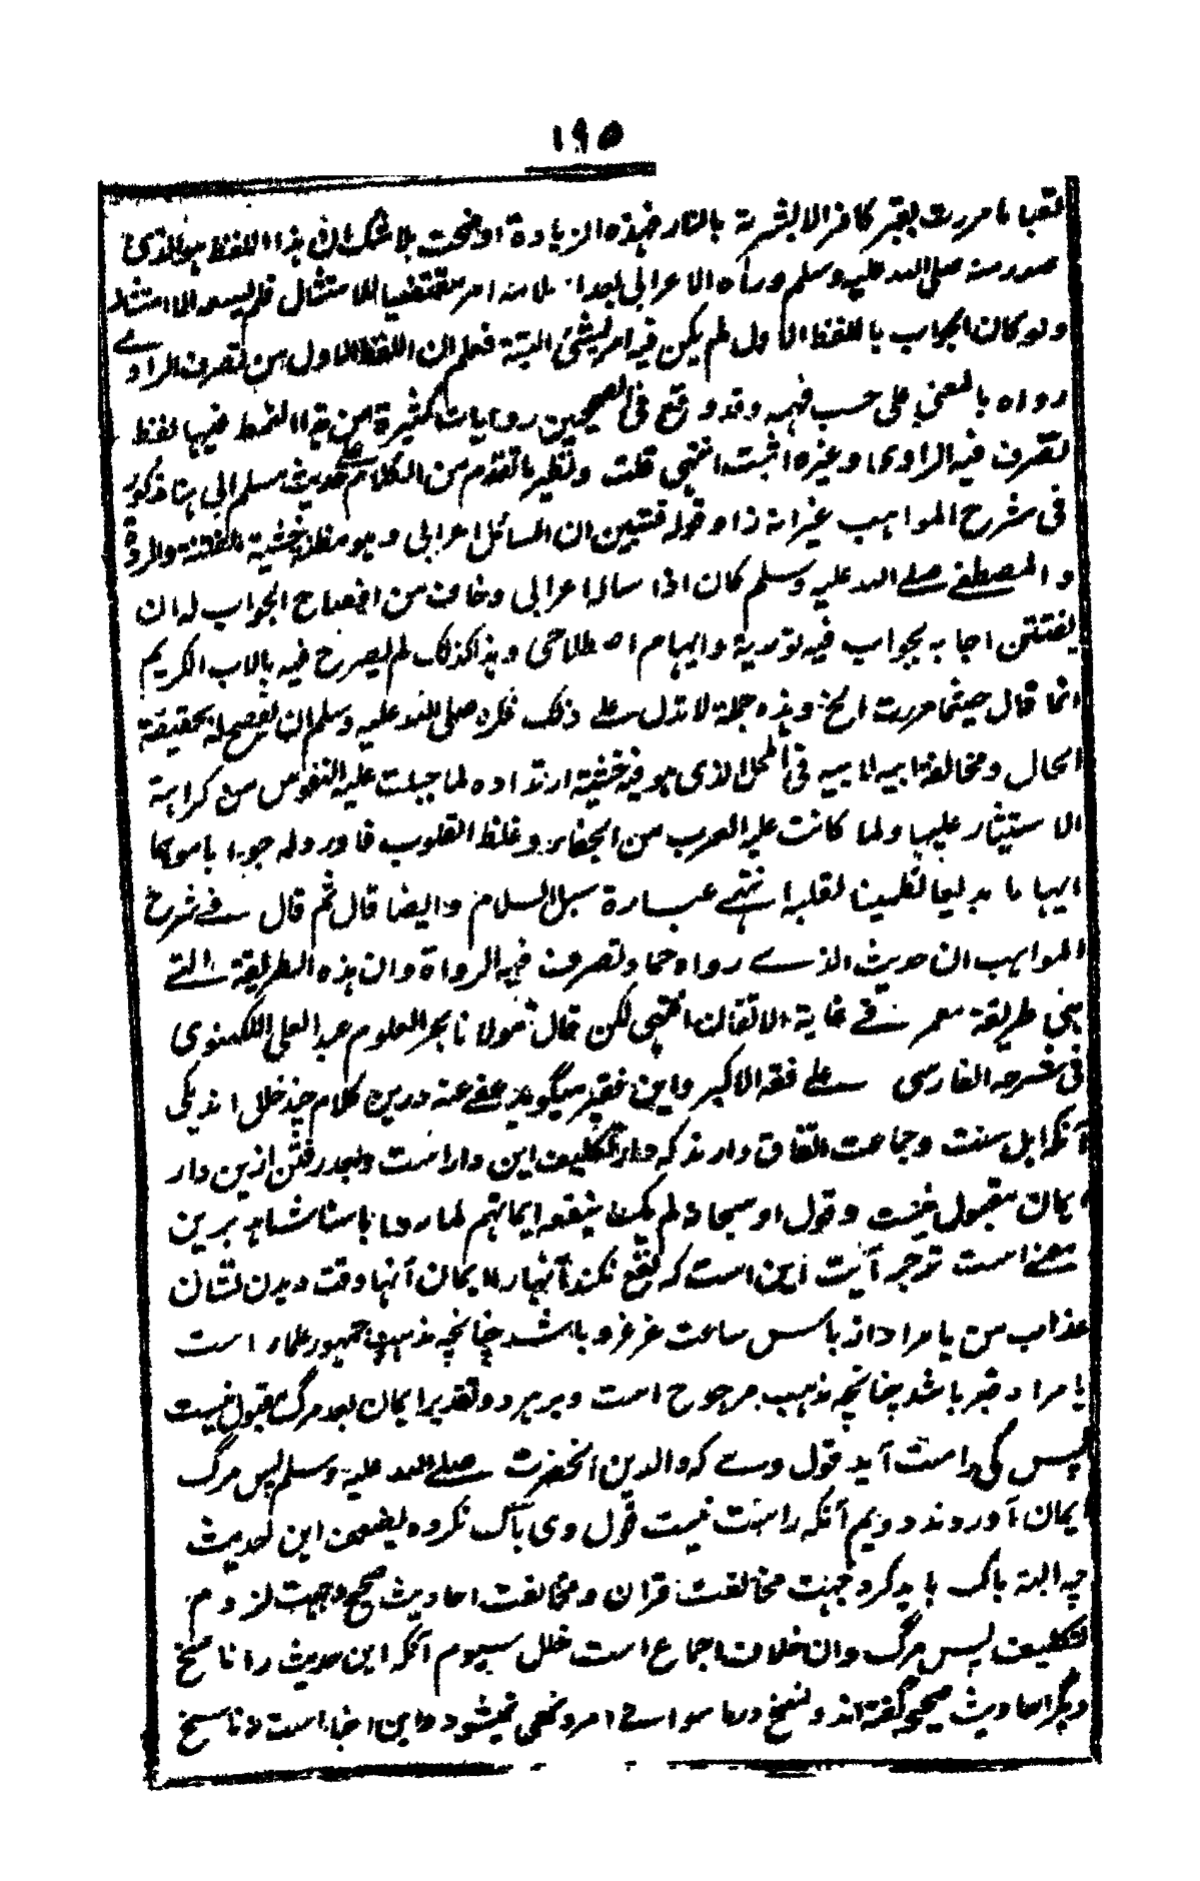 ١٩٥
تعبا ما مررت بقبر كافر الا بشرته بالنار فهذه الزيادة اوضحت بلا شك ان هذا اللفظ هو الذى
صدر منه صلى الله عليه وسلم ورآه الاعرابى بعد اسلامه امر مقتضيا للامتثال فلم يسعه الا امتثاله
ولو كان الجواب باللفظ الاول لم يكن فيه امر بشئ البتة فعلم ان اللفظ الاول من تصرف الراوى
رواه بالمعنى على حسب فهمه وقد وقع فى الصحيحين روايات كثيرة من هذا النمط فيها لفظ
تصرف فيه الراوى وغيره اثبت انتهى قلت ونظير ما تقدم من الكلام على حديث مسلم الى هنا مذكور
فى شرح المواهب غير انه زاد قوله فتبين ان السائل اعرابى وهو مظنة خشية الفتنة والردة
والمصطفى صلى الله عليه وسلم كان اذا ساله اعرابى وخاف من افصاح الجواب له ان
يفتتن اجابه بجواب فيه تورية وايهام اصطلاحى وهذا كذلك لم يصرح فيه بالاب الكريم
انما قال حيثما مررت الخ وهذه جملة لا تدل على ذلك فكره صلى الله عليه وسلم ان يفصح له بحقيقة
الحال ومخالفة ابيه لابيه فى المحل الذى هو فيه خشية ارتداده لما جبلت عليه النفوس من كراهة
الاستيثار عليها ولما كانت عليه العرب من الجفاء وغلظ القلوب فاورد له جوابا موهما
ايهاما بديعا تطمينا لقلبه انتهى عبارة سبل السلام وايضا قال ثم قال فى شرح
المواهب ان حديث الذى رواه حماد تصرف فيه الرواة وان هذه الطريقة التى
هى طريقة معمر فى غاية الاتقان انتهى لكن قال مولانا بحر العلوم عبد العلى اللكهنوى
فى شرحه الفارسى على فقه الاكبر واين فقير ميگويد عفى عنه درين كلام چند خلل اند يكى
آنكه اهل سنت وجماعت اتفاق دارند كه دار تكليف اين دار است وبعد رفتن ازين دار
ايمان مقبول نيست وقول او سبحانه لم يك ينفعهم ايمانهم لما راوا باسنا شاهد برين
معنى است ترجمه آيت اين است كه نفع نكند آنهارا ايمان آنها وقت ديدن نشان
عذاب من يا مراد از باس ساعت غرغره باشد چنانچه مذهب جمهور علماء است
يا مراد قبر باشد چنانچه مذهب مرجوح است وبر هر دو تقدير ايمان بعد مرگ مقبول نيست
پس كى راست آيد قول وى كه والدين آنحضرت صلى الله عليه وسلم پس مرگ
ايمان آوردند دويم آنكه راست نيست قول وى باك نكرده بضعف اين حديث
چه البته باك بايد كرد بجهت مخالفت قرآن ومخالفت احاديث صحيح وبجهت لزوم
تكليف پس مرگ وان خلاف اجماع است خلل سيوم آنكه اين حديث را ناسخ
ديگر احاديث صحيحه گفته اند ونسخ در ما سواى امر ونهى نميشود واين اخبار است نه ناسخ